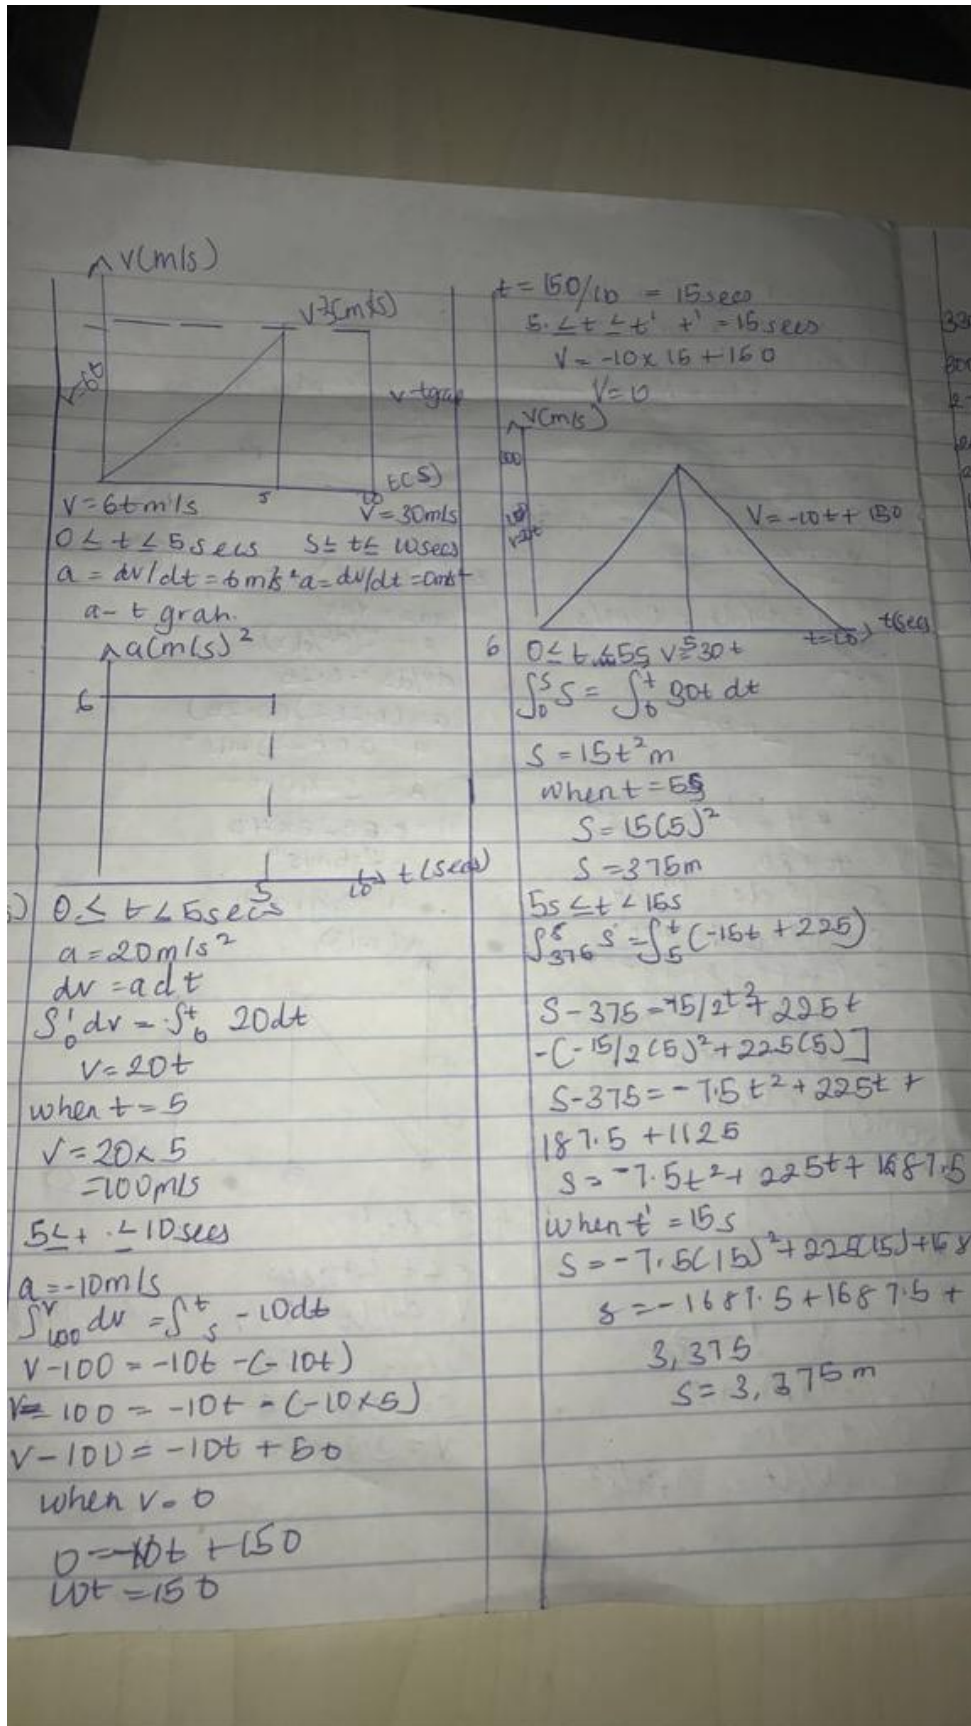 V(m/s)
V=6t
v-tgra
t(s)
5
10
V=6t m/s
V=30m/s
0 ≤ t < 5 secs 5 ≤ t ≤ 10secs
a = dv/dt = 6m/s² a = dv/dt = 0m/s²
a- t grah.
a(m/s)²
6
5
10
t(secs)
0 ≤ t < 5secs
a=20m/s²
dv = adt
dv = 20dt
V=20t
when t = 5
V=20x 5
=100m/s
5≤t ≤ 10secs
a=-10m/s
∫ᵛ₁₀₀ dv = ∫ᵗ₅ -10dt
V-100 = -10t -(-10t)
100 = -10t - (-10x5)
V-100 = -10t + 50
when v=0
0=-10t +150
10t =150
t = 150/10 = 15secs
5. ≤ t ≤ t' t' = 15secs
V= -10 x 15 + 150
V=0
V(m/s)
100
V=-10t+ 150
5
t(secs)
6
0≤ t ≤5s v=30t
∫ˢ₀ S = ∫ᵗ₀ 30t dt
S = 15t² m
when t=5s
S= 15(5)²
S=375m
5s ≤t < 15s
∫ˢ₃₇₅ s = ∫ᵗ₅ (-15t +225)
S-375=-15/2t²+ 225t
-(-15/2(5)²+225(5)]
S-375= -7.5t²+225t +
187.5 +1125
S= -7.5t²+ 225t+ 1687.5
when t' = 15s
S= -7.5(15)²+225(15)+168
s = -1687.5+1687.5 +
3,375
S= 3,375m